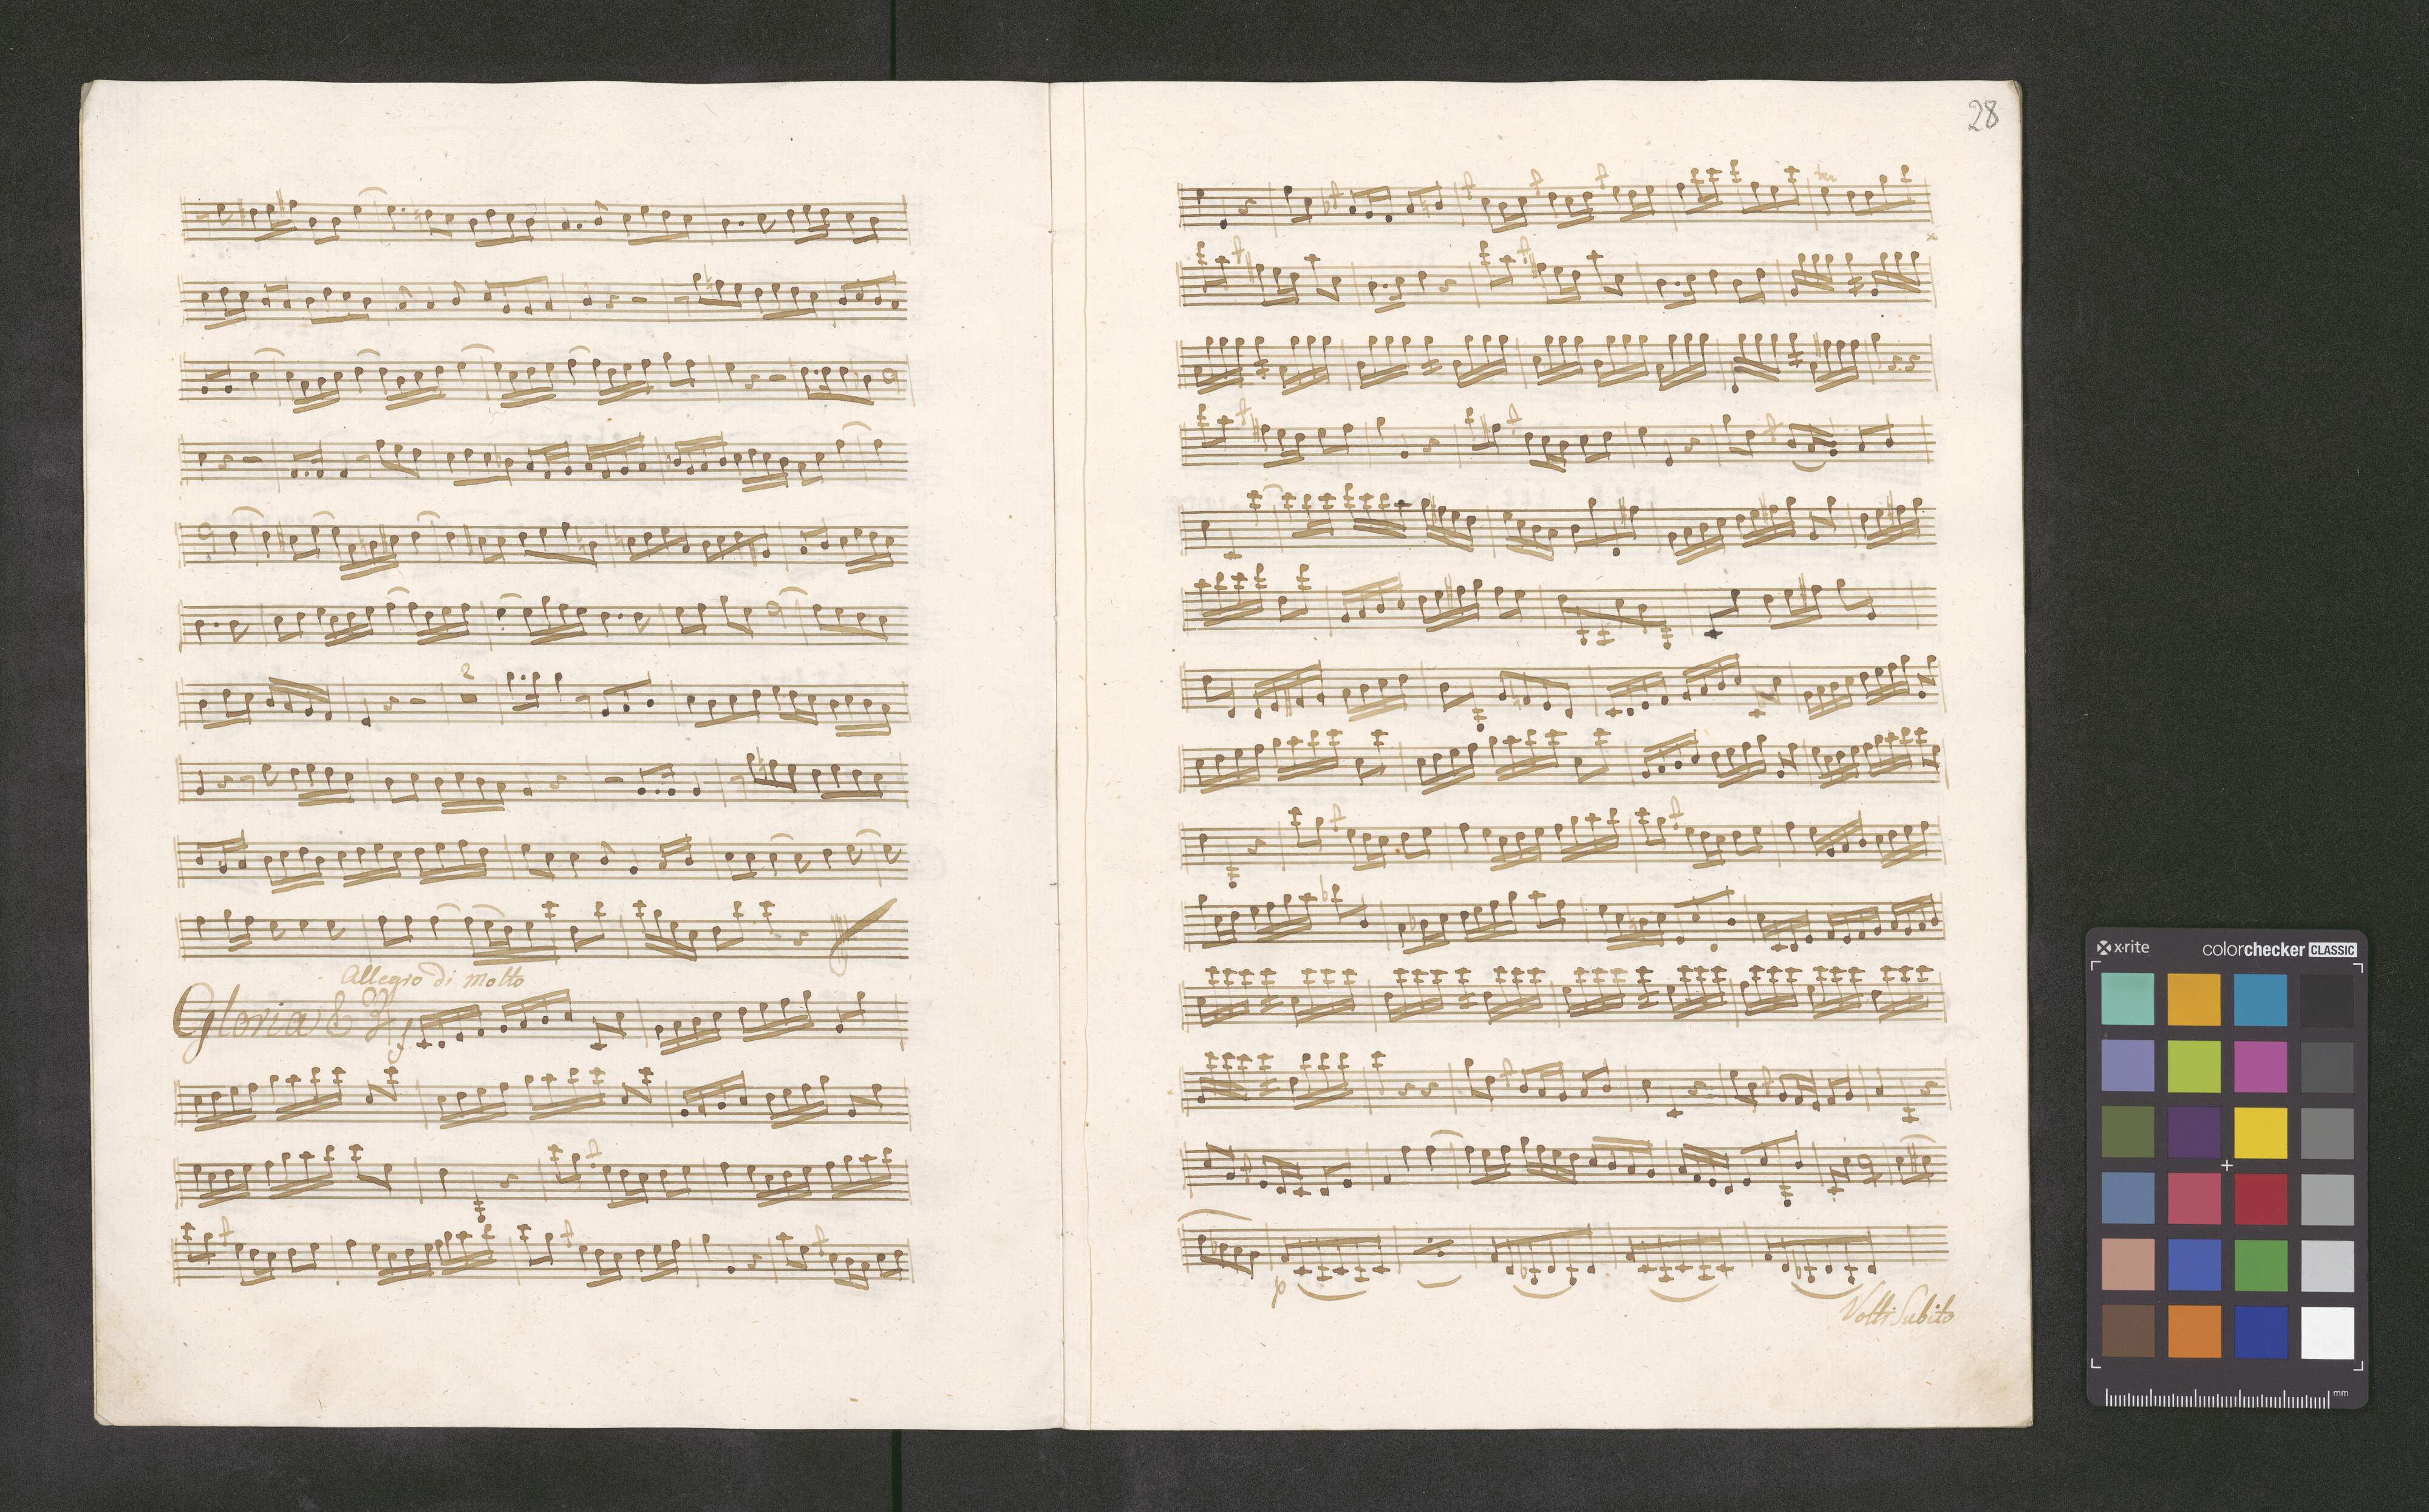 28
tr
2
Allegro di Molto
Gloria
p
Volti Subito
x-rite
colorchecker CLASSIC
mm